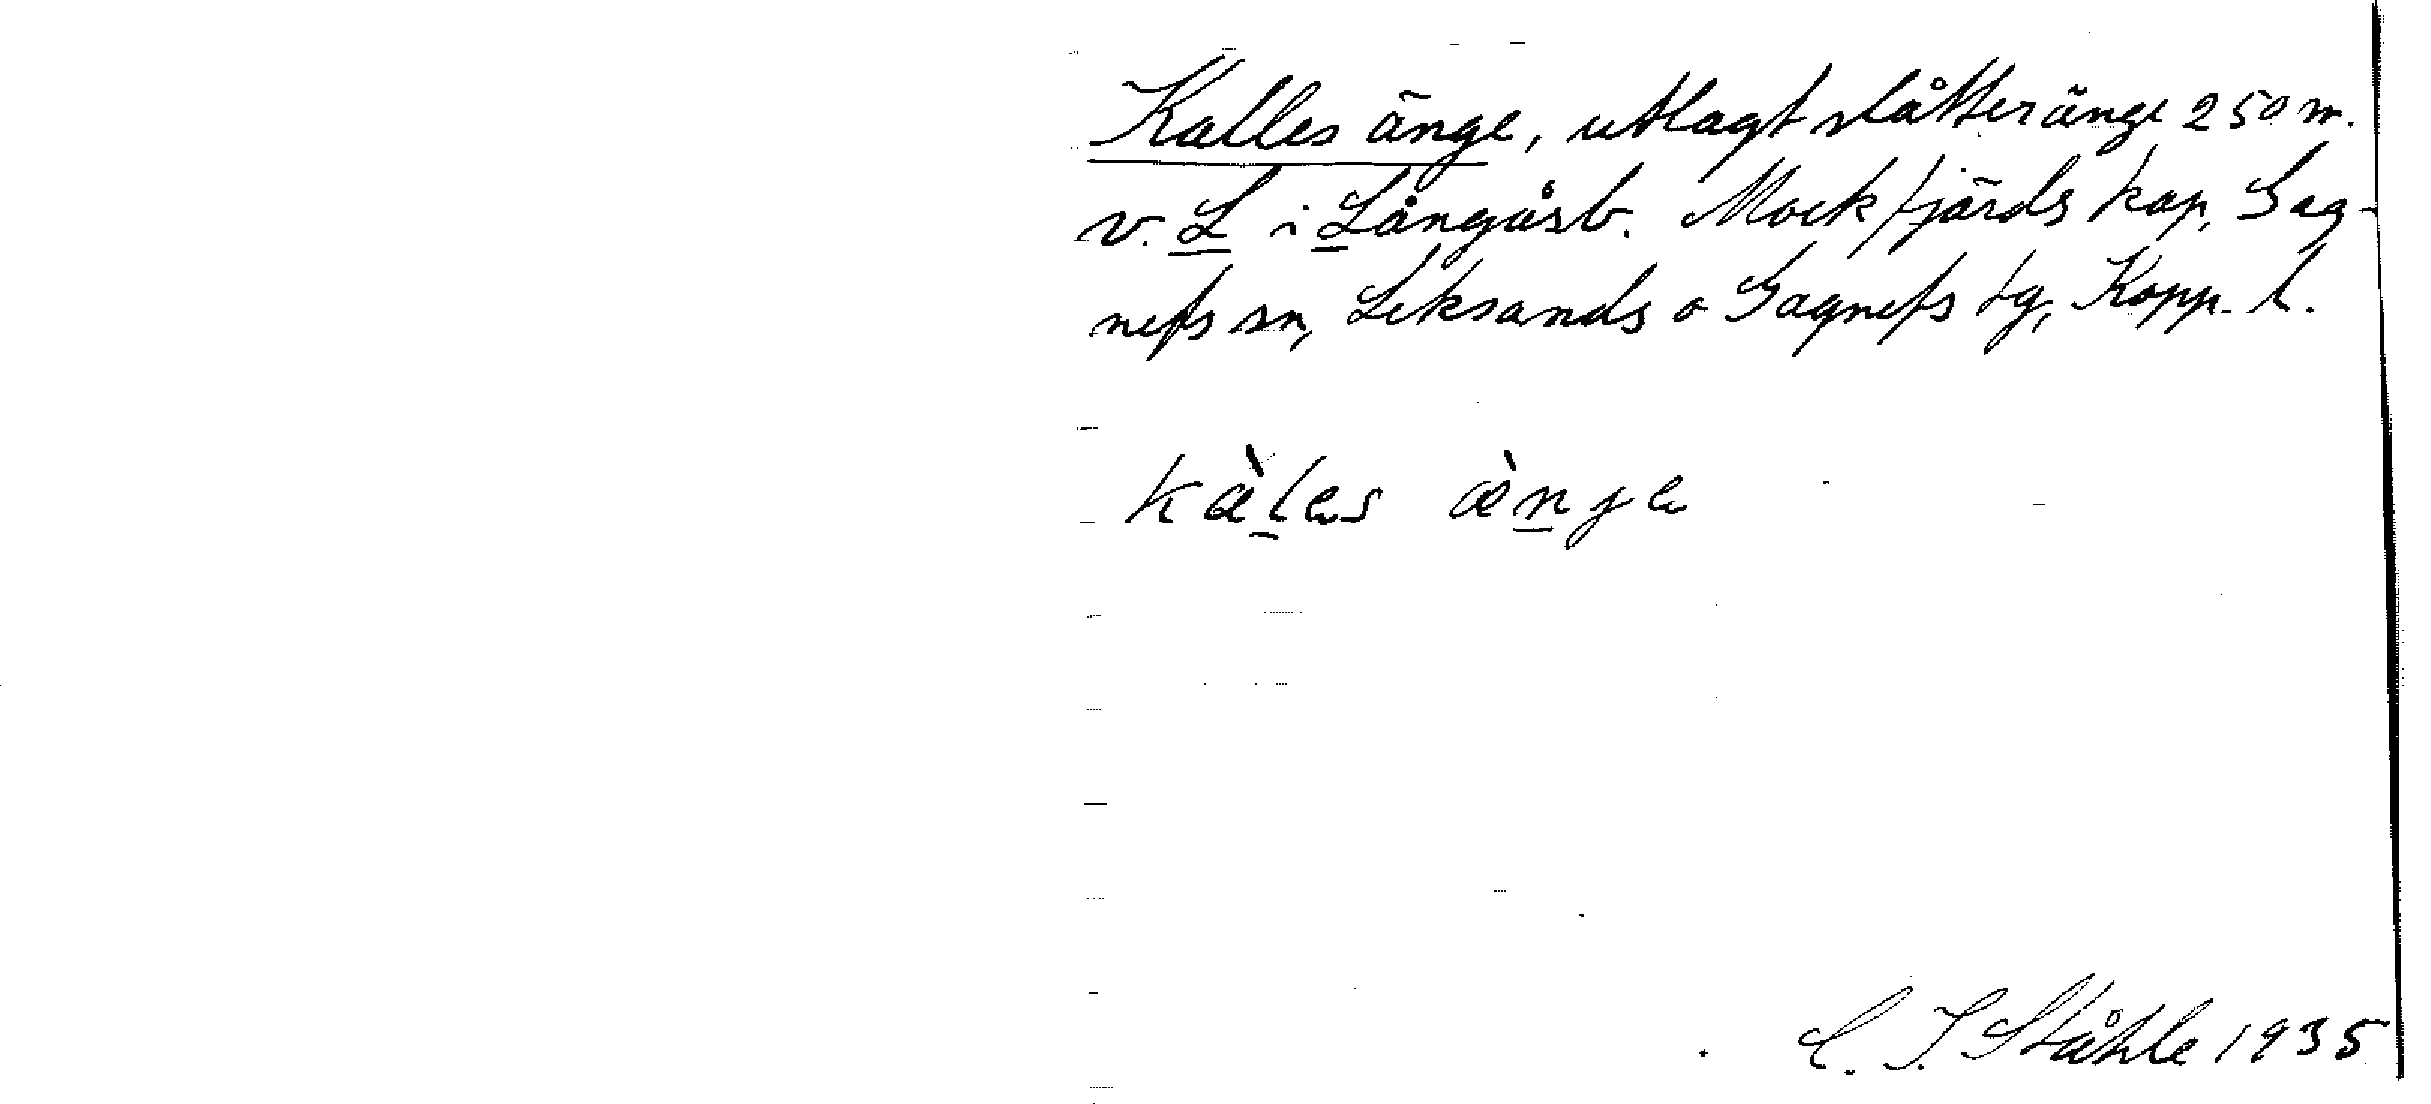 Kalles änge, utlagt slåtteränge 250 m.
v. L i Långåsb. Mockfjärds kap, Gag-
nefs sn, Leksands o Gagnefs tg, Kopp. l.
kàles æ̀nge
C. I. Ståhle 1935